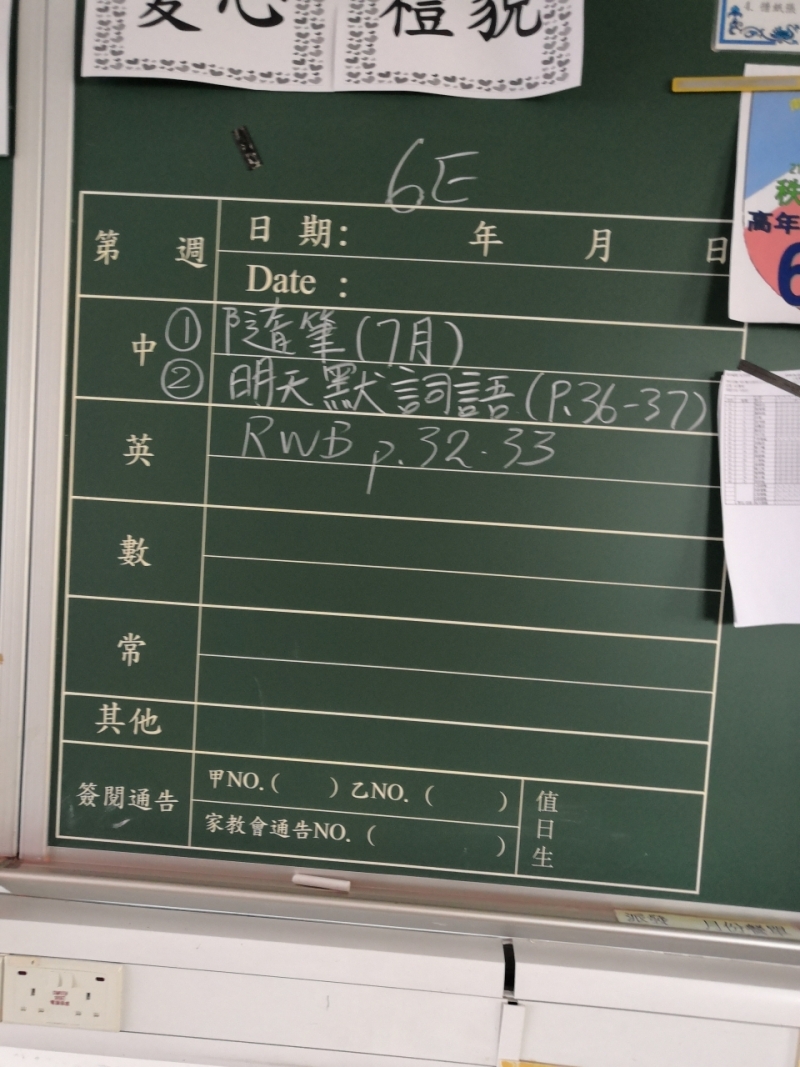 愛心 禮貌
6E
第 週
日 期: 年 月 日
Date :
中 ① 隨筆(7月)
② 明天默詞語(P.36-37)
英 RWB p.32.33
數
常
其他
簽閱通告 甲NO.( ) 乙NO.( )
家教會通告NO.( )
值日生
高年
6